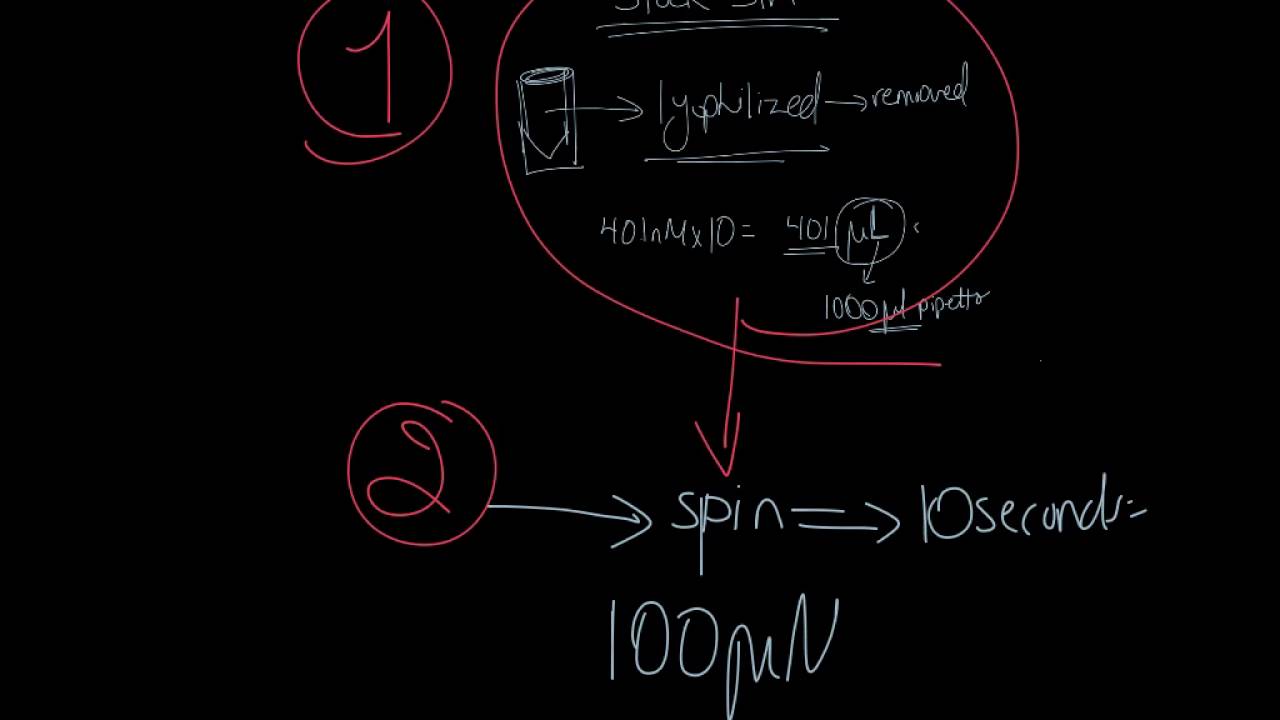 1
lyophilized → removed
401nMx10 = 401 µL
1000µl pipette
2 → spin ⇒ 10seconds
100µN